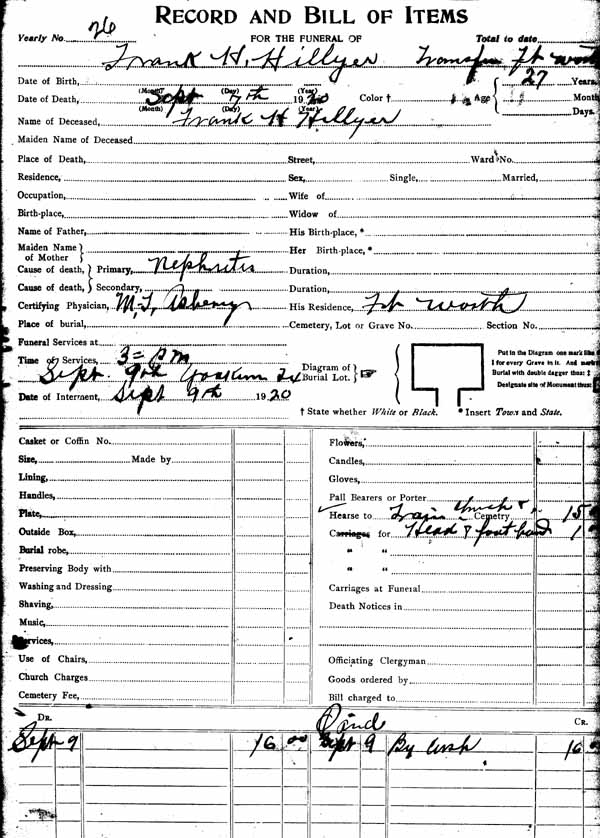 RECORD AND BILL OF ITEMS
Yearly No. 26 FOR THE FUNERAL OF Total to date
Frank H. Hillyer Transfer Ft Worth
Date of Birth, (Month) (Day) (Year) 27 Years
Date of Death, Sept 7th 1920 Color † Age Month
(Month) (Day) (Year) Days.
Name of Deceased, Frank H Hillyer
Maiden Name of Deceased
Place of Death, Street, Ward No.
Residence, Sex, Single, Married,
Occupation, Wife of
Birth-place, Widow of
Name of Father, His Birth-place, *
Maiden Name of Mother } Her Birth-place, *
Cause of death, } Primary, Nephritis Duration,
Cause of death, } Secondary, Duration,
Certifying Physician, M.T. His Residence, Ft Worth
Place of burial, Cemetery, Lot or Grave No. Section No.
Funeral Services at
Time of Services, 3= PM
Sept. 9th Yoakum Tx
Diagram of Burial Lot. ☞
Put in the Diagram one mark like
for every Grave in it. And mark
Burial with double dagger thus: ‡
Designate site of Monument thus:
Date of Interment, Sept 9th 1920
† State whether White or Black. * Insert Town and State.
Casket or Coffin No. Flowers,
Size, Made by Candles,
Lining, Gloves,
Handles, Pall Bearers or Porter
Plate, Hearse to Train Church & Cemetry 15
Outside Box, Carriages for Head & foot board 1
Burial robe, " "
Preserving Body with " "
Washing and Dressing Carriages at Funeral
Shaving, Death Notices in
Music,
Services,
Use of Chairs, Officiating Clergyman
Church Charges Goods ordered by
Cemetery Fee, Bill charged to
DR. Paid CR.
Sept 9 16 00 Sept 9 By Cash 16